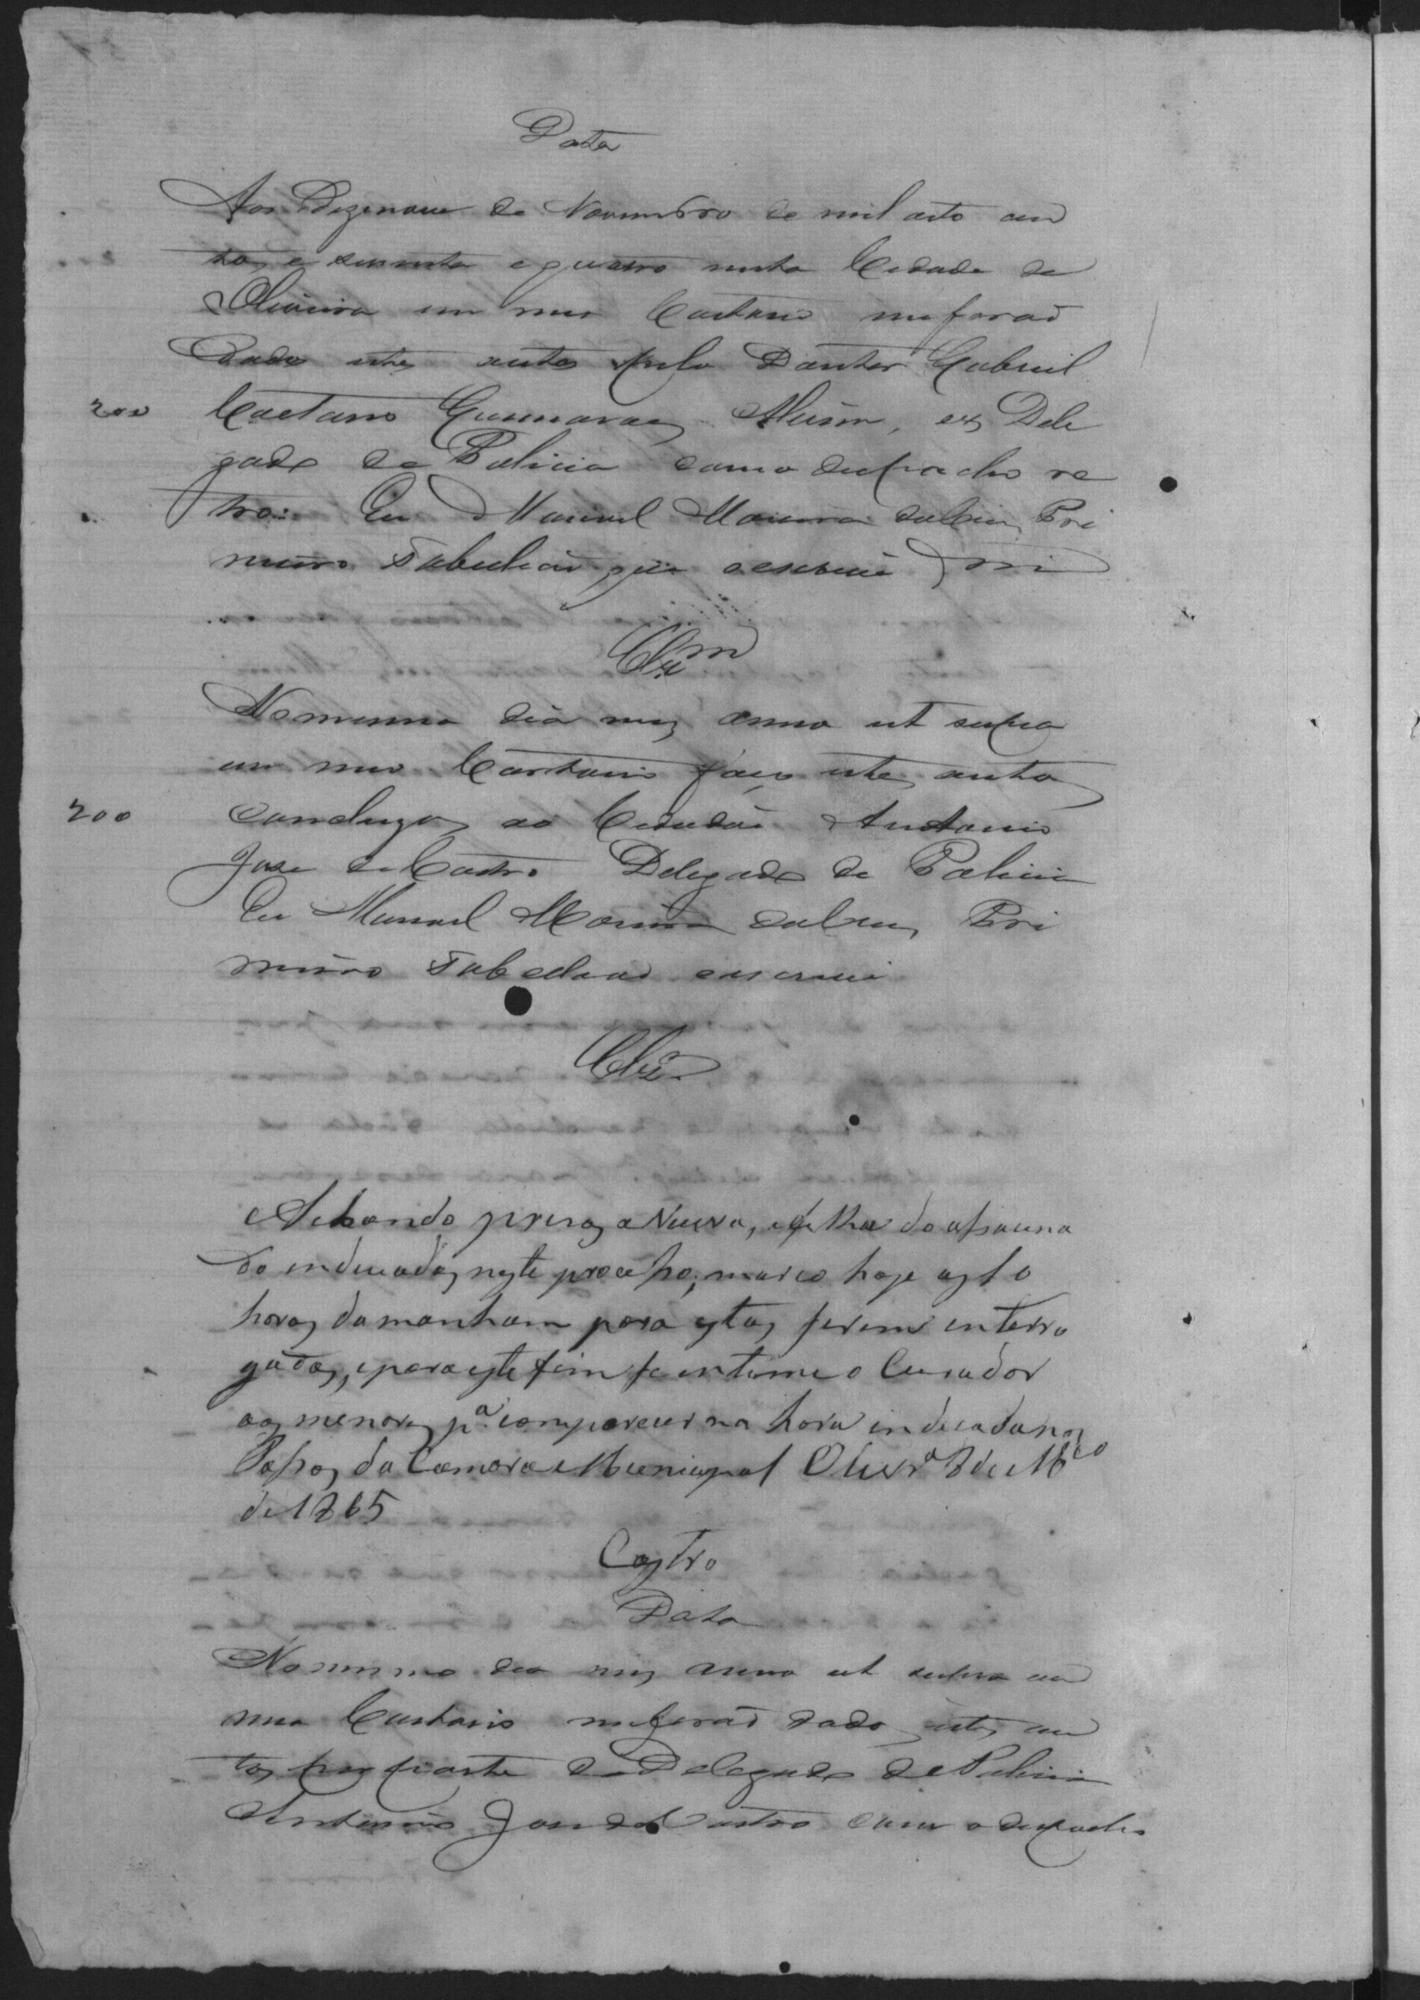 Data
Aos Dezenove de Novembro de mil oito cen
tos e secenta e quatro nesta Cidade de
Oliveira em meu Cartorio me forão
dados estes autos pelo Doutor Gabriel
200 Caetano Guimaraes Alvim, ex Dele
gado de Policia com o despacho re
tro: Eu Manoel Moreira
Primeiro Tabelião que o escrevi
Clz.m
No mesmo dia mes anno ut supra
em meu Cartorio faço estes autos
200 concluzos ao Cidadão Antonio
Jose de Castro Delegado de Policia
Eu Manoel Moreira Pri
meiro Tabelião escrevi
Clz.
Achando prezos a Viuva, e filha do assacina
do indiciados neste processo, marco hoje as 10
horas da manham para estas serem interro
gadas, e para este fim se intime o Curador
aos menores p.a comparecer na hora indicada nos
Passos da Camara Municipal Oliv.a 8 de M.ço
de 1865
Castro
Data
No mesmo dia mes anno ut supra em
meu Cartorio me forão dados estes au
tos por parte do Delegado de Policia
Antonio Jose de Castro com o despacho